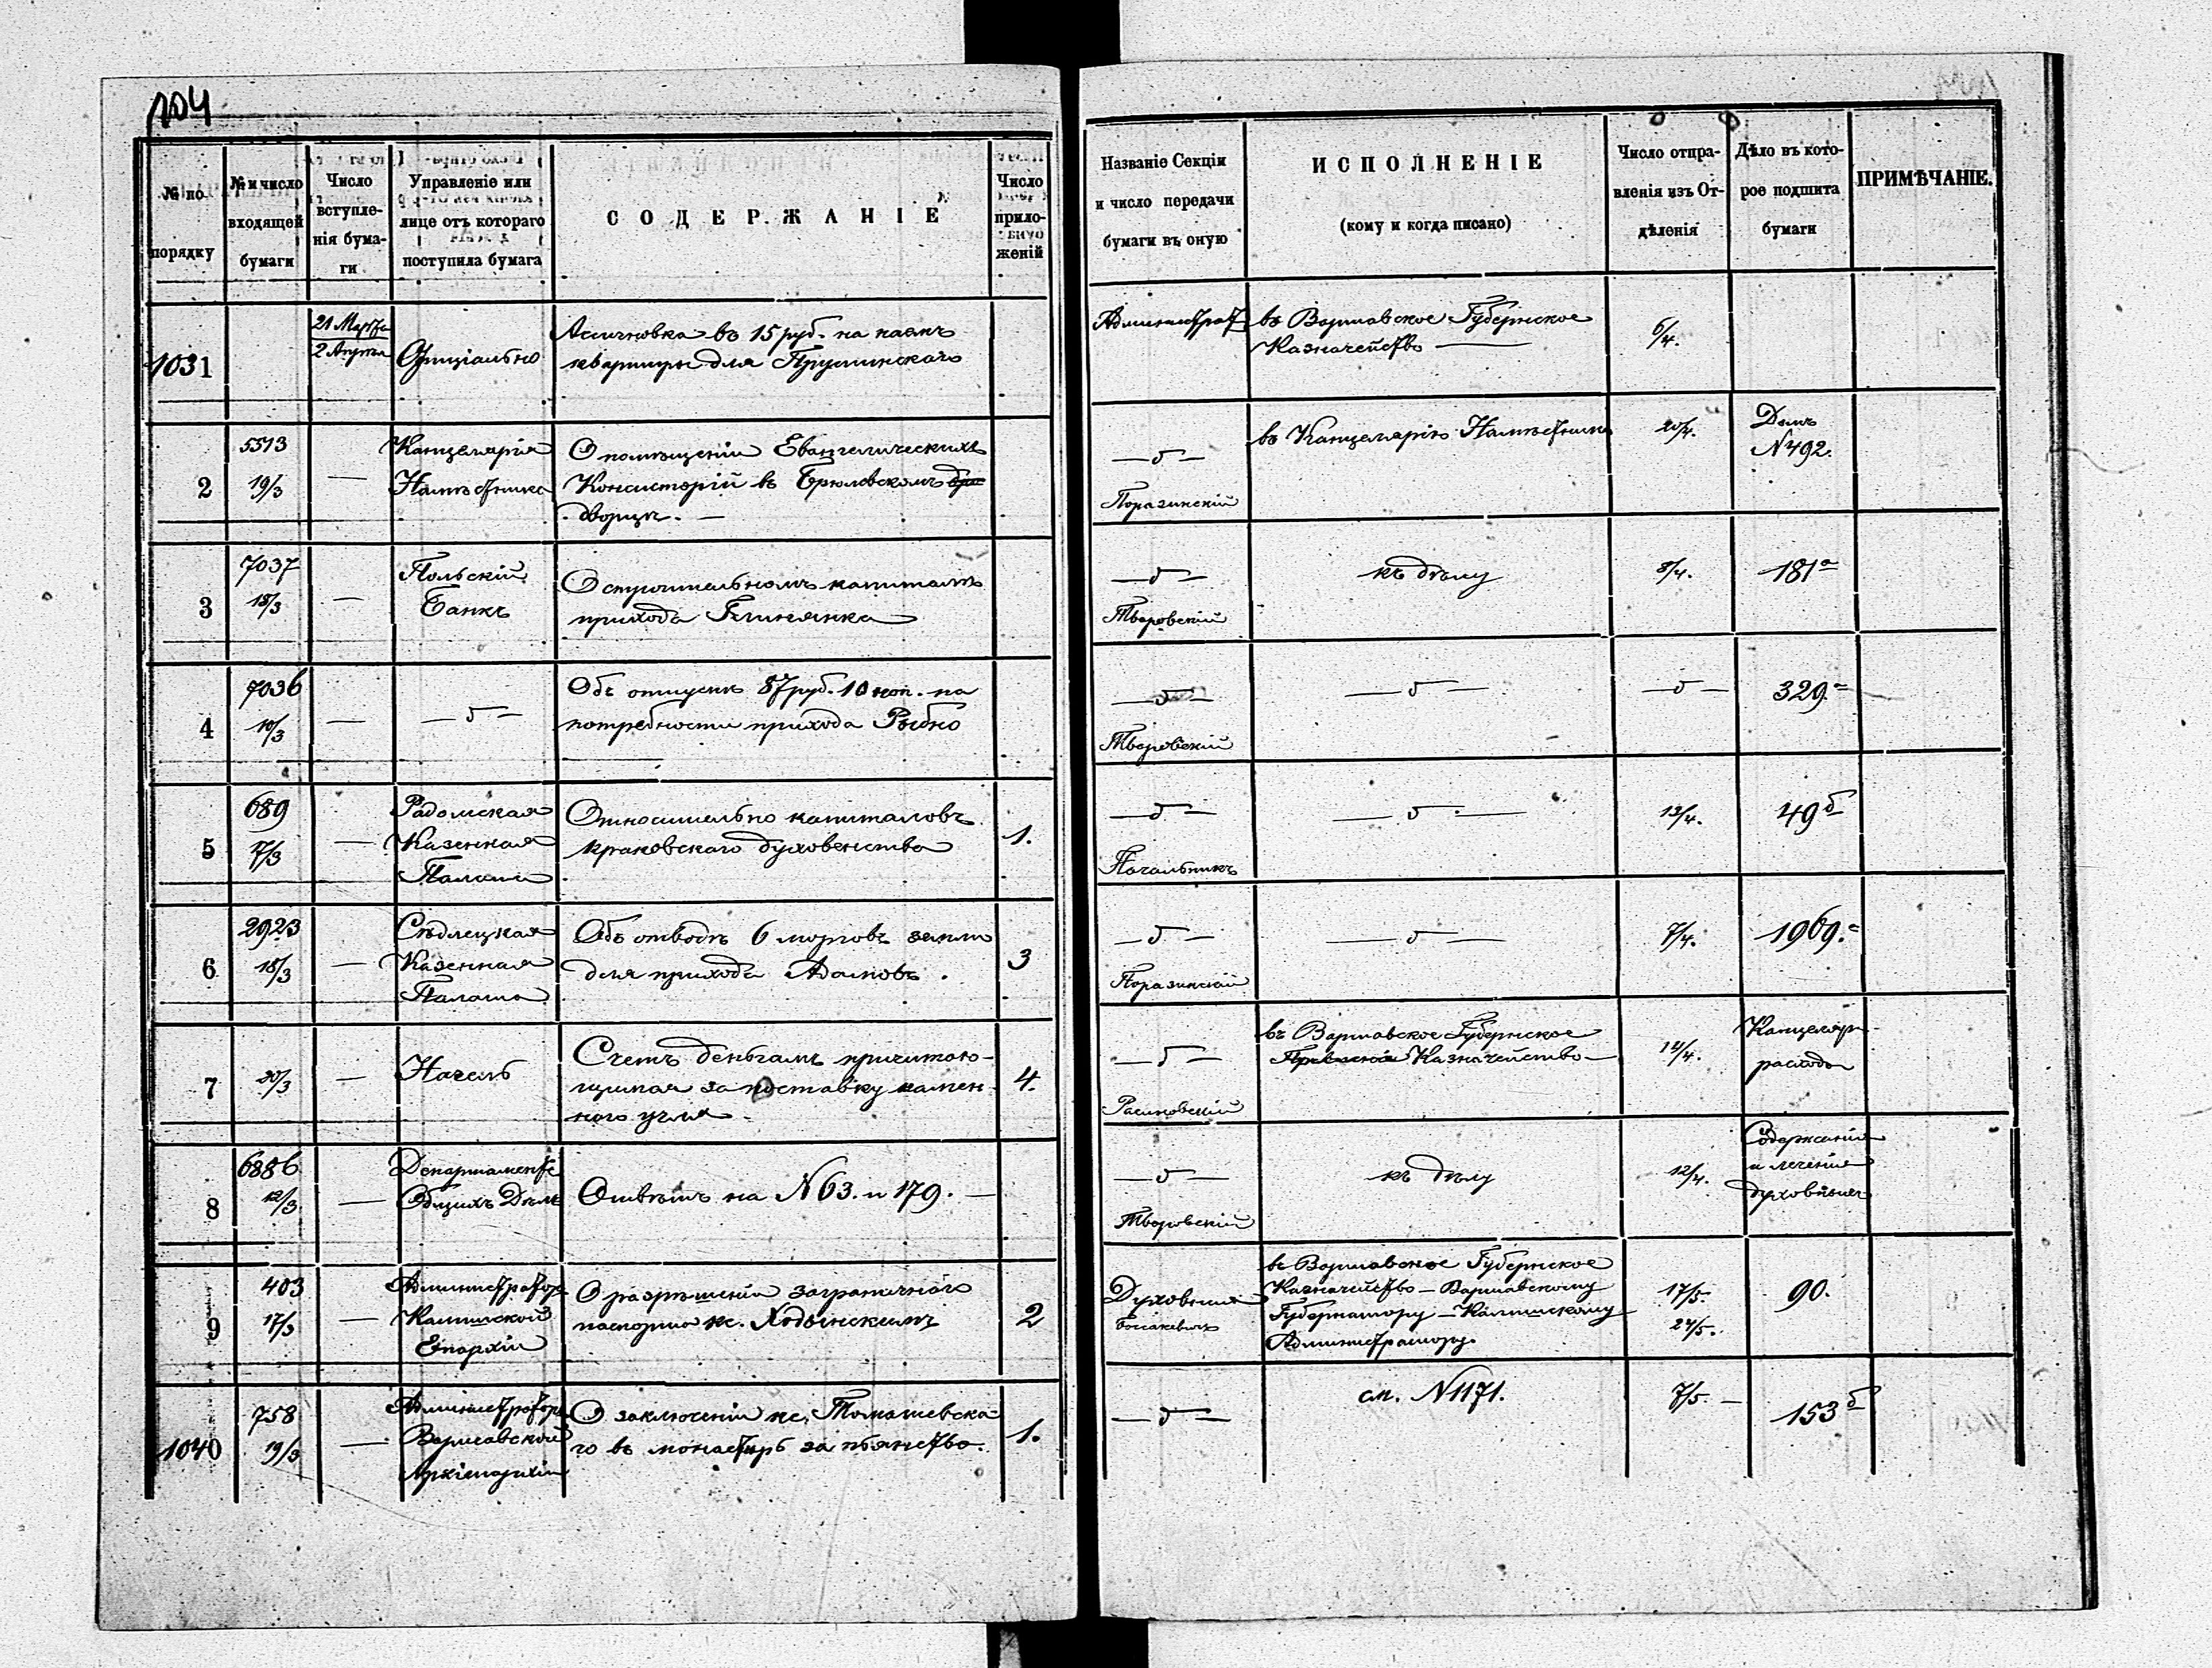 104
№ по порядку
№ и число входящей бумаги
Число вступле-нія бума-ги
Управленіе или лице отъ котораго поступила бумага
СОДЕРЖАНІЕ
Число прило-женій
Названіе Секціи и число передачи бумаги въ оную
ИСПОЛНЕНІЕ
(кому и когда писано)
Число отпра-вленія изъ От-дѣленія
Дѣло въ кото-рое подшита бумаги
ПРИМѢЧАНІЕ.
1031
21 Марта
2 Апрѣля
Офиціально
Ассигновка въ 15 руб. на наемъ
квартиры для Прушинскаго
Администрат
въ Варшавское Губернское
Казначейство —
6/4.
2
5513
19/3
—
Канцелярія
Намѣстника
О помѣщеніи Евангелическихъ
Консисторій въ Брюлевскомъ
дворцѣ. —
— δ —
Поразинскій
въ Канцелярію Намѣстника
20/4.
Домъ
N 492.
3
7037
18/3
—
Польскій
Банкъ
О строительномъ капиталѣ
прихода Глинянка
— δ —
Тваровскій
къ дѣлу
8/4.
181а
4
7036
10/3
—
— δ —
Объ отпускѣ 87 руб. 10 коп. на
потребности прихода Рыбно
— δ —
Тваровскій
— δ —
— δ —
329.
5
689
7/3
—
Радомская
Казенная
Палата
Относительно капиталовъ
краковскаго духовенства
1.
— δ —
Начальникъ
— δ —
13/4.
49 б
6
2923
18/3
—
Сѣдлецкая
Казенная
Палата
Объ отводѣ 6 морговъ земли
для прихода Адамовъ.
3
— δ —
Поразинскій
— δ —
7/4.
1969.
7
20/3
—
Нагель
Счетъ деньгамъ причитаю-
щимся за поставку камен-
наго угля.
4.
— δ —
Расиновскій
въ Варшавское Губернское
Казначейство —
14/4.
Канцеляр.
расходы
8
6886
12/3
—
Департаментъ
Общихъ Дѣлъ
Отвѣтъ на N 63. и 179. —
— δ —
Тваровскій
къ дѣлу
12/4.
Содержаніе
и леченіе
духовныхъ
9
403
17/3
—
Администраторъ
Калишской
Епархіи
О разрѣшеніи заграничнаго
паспорта кс. Ходынскимъ
2
Духовная
въ Варшавское Губернское
Казначейство — Варшавскому
Губернатору — Калишскому
Администратору.
17/5.
24/5.
90.
1040
758
19/3
—
Администраторъ
Варшавской
Архіепархіи
О заключеніи кс. Томашевска-
го въ монастырь за пьянство.
1.
— δ —
см. N 1171.
7/5. —
153 б